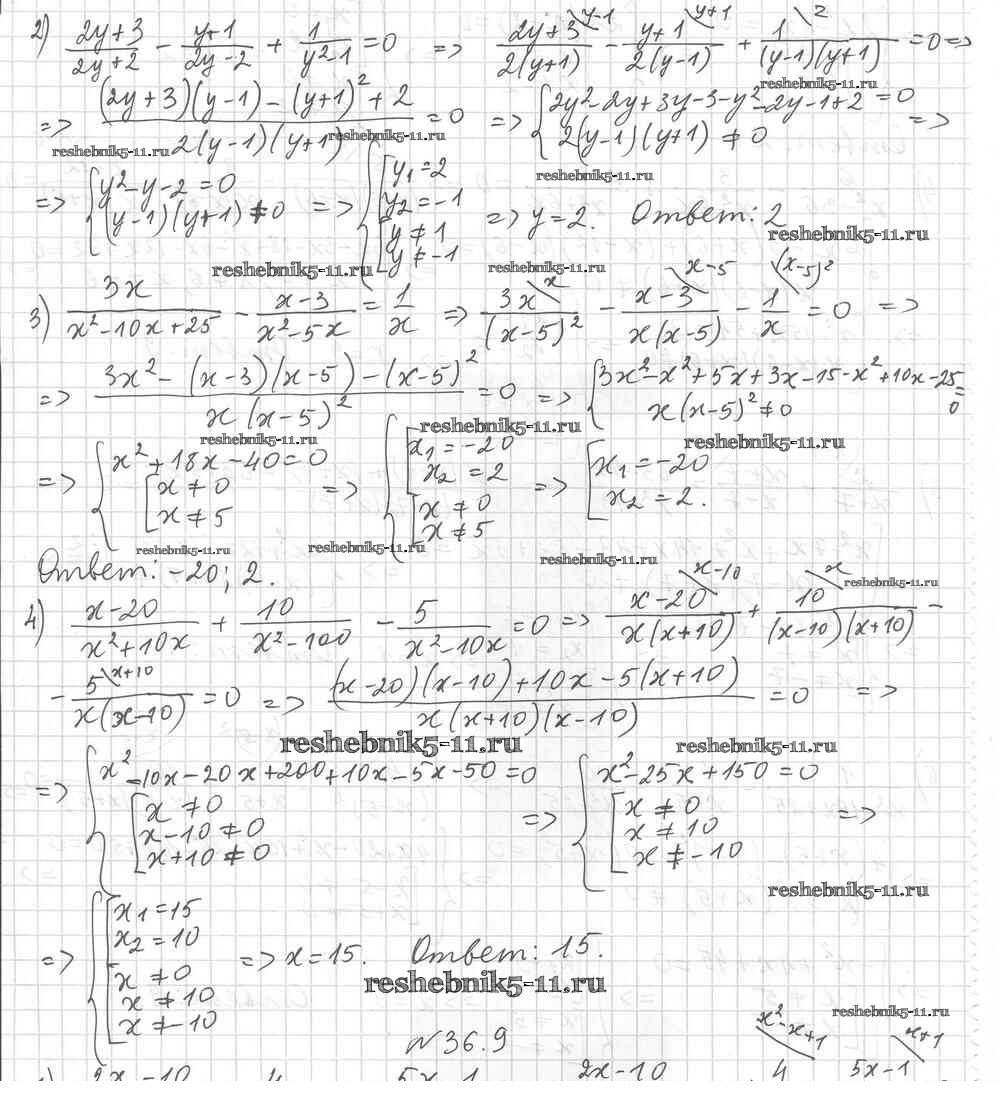 2) (2y+3)/(2y+2) - (y+1)/(2y-2) + 1/(y²-1) = 0 => (2y+3)\y-1/(2(y+1)) - (y+1)\y+1/(2(y-1)) + 1\2/((y-1)(y+1)) = 0 =>
reshebnik5-11.ru
=> ((2y+3)(y-1) - (y+1)² + 2)/(2(y-1)(y+1)) = 0 => { 2y²-2y+3y-3-y²-2y-1+2 = 0 =>
2(y-1)(y+1) ≠ 0
reshebnik5-11.ru reshebnik5-11.ru
reshebnik5-11.ru
=> { y²-y-2 = 0 => { [ y₁ = 2
(y-1)(y+1) ≠ 0 y₂ = -1 => y = 2. Ответ: 2
[ y ≠ 1
y ≠ -1
reshebnik5-11.ru
reshebnik5-11.ru reshebnik5-11.ru
3) 3x/(x²-10x+25) - (x-3)/(x²-5x) = 1/x => 3x\x/(x-5)² - (x-3)\x-5/(x(x-5)) - 1\(x-5)²/x = 0 =>
=> (3x² - (x-3)(x-5) - (x-5)²)/(x(x-5)²) = 0 => { 3x²-x²+5x+3x-15-x²+10x-25 = 0
x(x-5)² ≠ 0
reshebnik5-11.ru reshebnik5-11.ru reshebnik5-11.ru
=> { x²+18x-40 = 0 => { [ x₁ = -20 => [ x₁ = -20
[ x ≠ 0 x₂ = 2 x₂ = 2.
x ≠ 5 [ x ≠ 0
x ≠ 5
reshebnik5-11.ru reshebnik5-11.ru reshebnik5-11.ru
Ответ: -20; 2.
4) (x-20)/(x²+10x) + 10/(x²-100) - 5/(x²-10x) = 0 => (x-20)\x-10/(x(x+10)) + 10\x/((x-10)(x+10)) -
reshebnik5-11.ru
- 5\x+10/(x(x-10)) = 0 => ((x-20)(x-10)+10x-5(x+10))/(x(x+10)(x-10)) = 0 =>
reshebnik5-11.ru reshebnik5-11.ru
=> { x²-10x-20x+200+10x-5x-50 = 0 => { x²-25x+150 = 0 =>
[ x ≠ 0 [ x ≠ 0
x-10 ≠ 0 x ≠ 10
x+10 ≠ 0 x ≠ -10
reshebnik5-11.ru
=> { [ x₁ = 15
x₂ = 10 => x = 15. Ответ: 15.
[ x ≠ 0
x ≠ 10
x ≠ -10
reshebnik5-11.ru
reshebnik5-11.ru
№36.9
x²-x+1 x+1
2x-10 4 5x-1 2x-10 4 5x-1